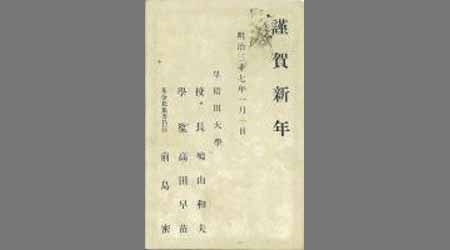 謹賀新年
明治三十七年一月一日
早稲田大學
校長 鳩山和夫
學監 高田早苗
前島密